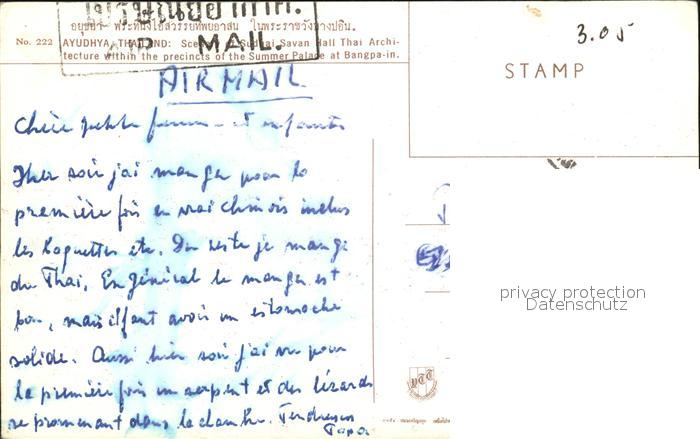 ไปรษณียอากาศ
AIR MAIL.
อยุธยา พระที่นั่งไอสวรรย์ทิพยอาสน์ ในพระราชวังบางปะอิน.
No. 222 AYUDHYA, THAILAND: Scene of Savan Hall Thai Archi-
tecture within the precincts of the Summer Palace at Bangpa-in.
3.05
STAMP
AIR MAIL
Chère petite femme et enfants
Hier soir j'ai manger pour la
première fois en vrai chinois inclus
les baguettes etc. Du reste je mange
du Thai. En général le manger est
bon, mais il faut avoir un estomache
solide. Aussi hier soir j'ai vu pour
la première fois un serpent et des lézards
se promenant dans la chambre. Tendresses
Papa
privacy protection
Datenschutz